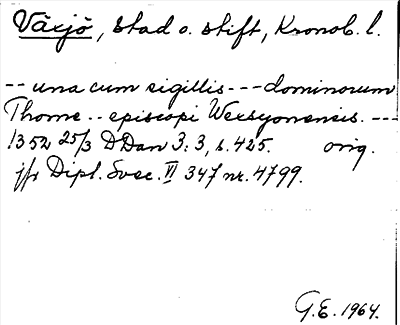 Växjö, stad o. stift, Kronob. l.
-- una cum sigillis --- dominorum
Thome -- episcopi Wexsyonensis. ---
1352 25/3 DDan 3:3, s. 425. orig.
jfr Dipl. Svec. VI 347 nr. 4799.
G.E. 1964.